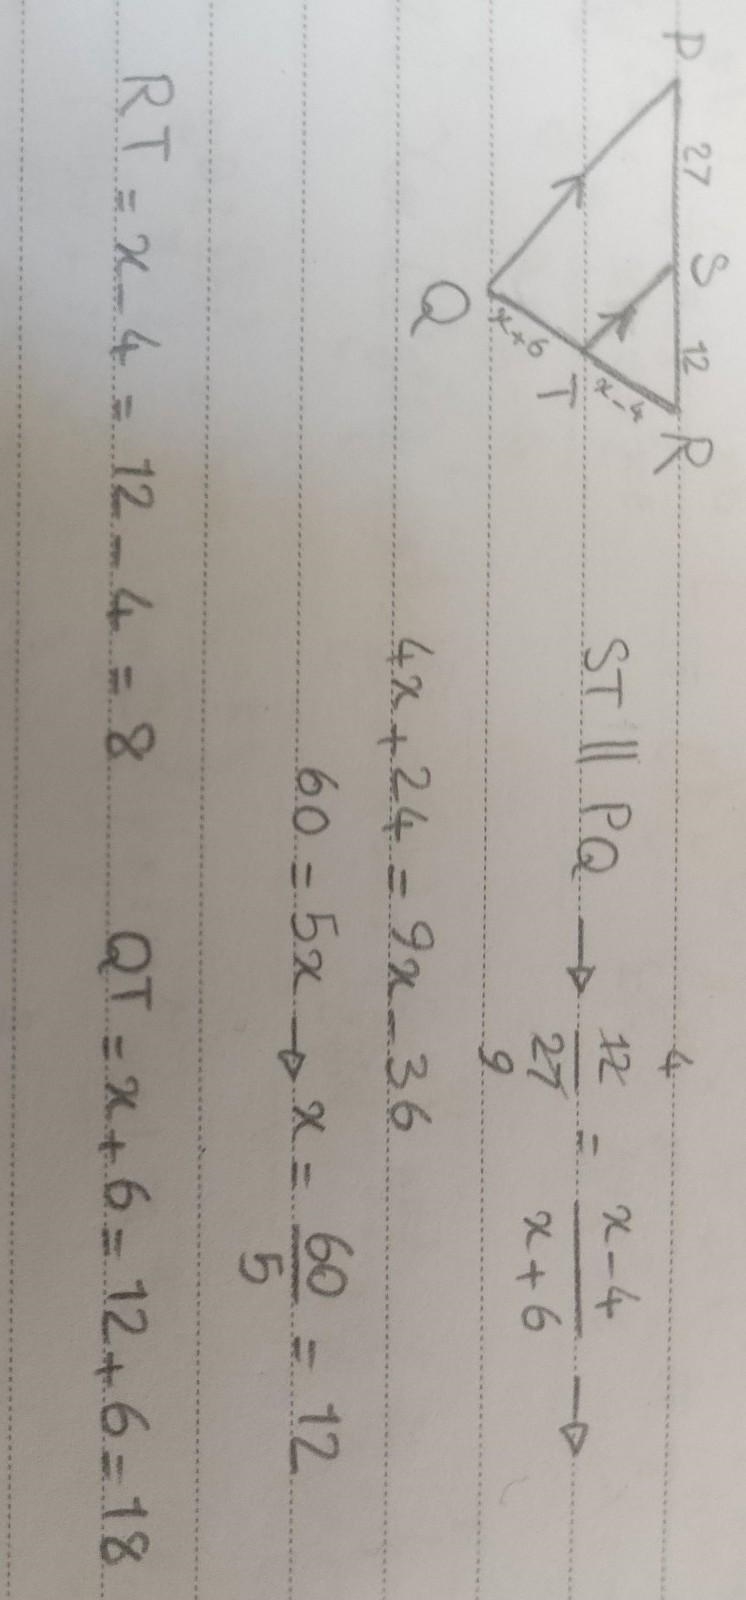 P 27 S 12 R
x+6 T x-4
Q
ST || PQ → 12/27 = x-4/x+6 →
4 9
4x+24 = 9x-36
60 = 5x → x = 60/5 = 12
RT = x-4 = 12-4 = 8 QT = x+6 = 12+6 = 18